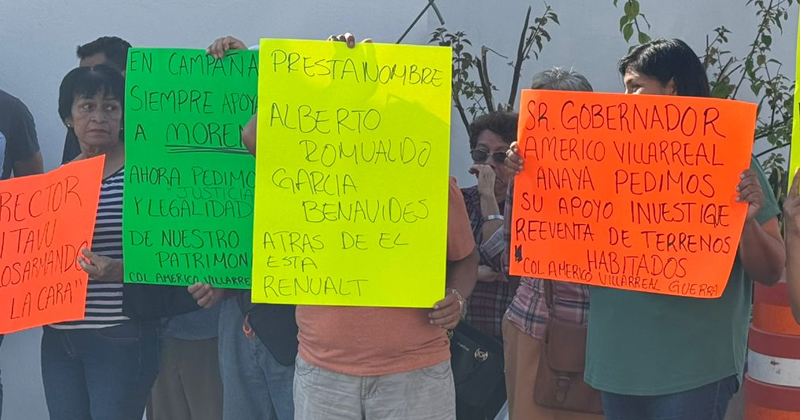 RECTOR
ITAVU
"
LA CARA"
EN CAMPAÑA
SIEMPRE APOYA
A MOREN
AHORA PEDIMOS
JUSTICIA
Y LEGALIDAD
DE NUESTRO
PATRIMON
COL AMERICO VILLARRE
PRESTANOMBRE
ALBERTO
ROMUALDO
GARCIA
BENAVIDES
ATRAS DE EL
ESTA
RENUALT
SR. GOBERNADOR
AMERICO VILLARREAL
ANAYA PEDIMOS
SU APOYO INVESTIGE
REEVENTA DE TERRENOS
HABITADOS
COL AMERICO VILLARREAL GUERRA